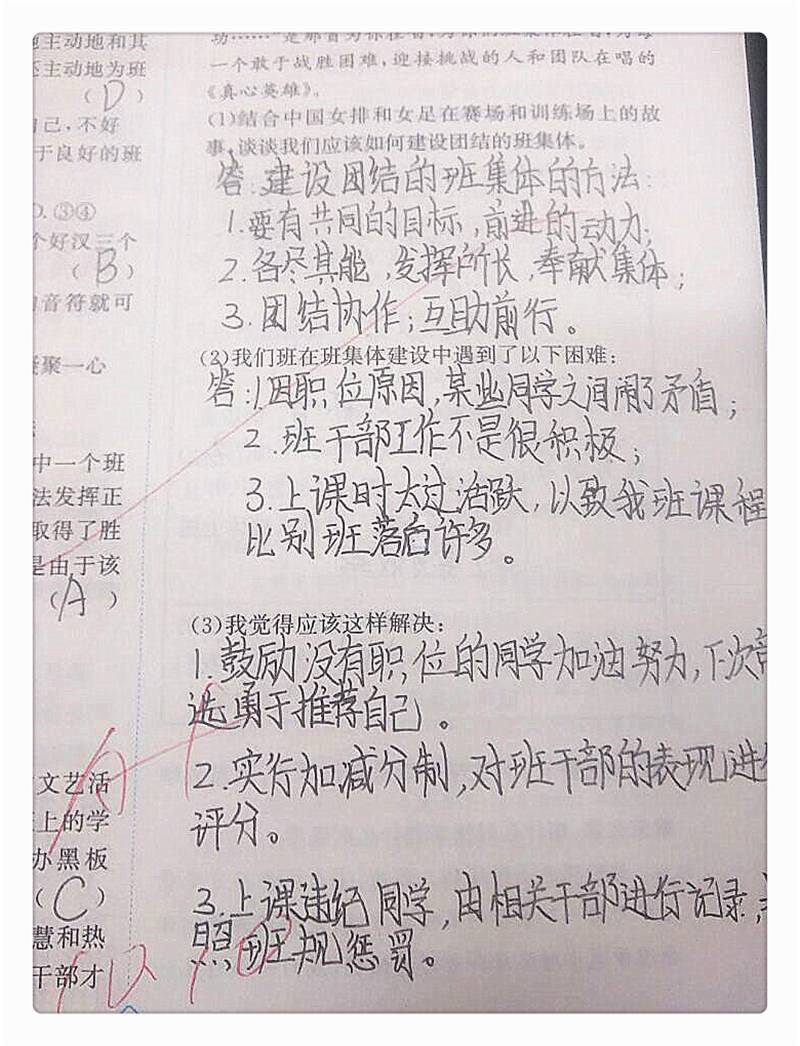 他主动地和其
还主动地为班
(D)
自己,不好
于良好的班
D.③④
个好汉三个
(B)
的音符就可
凝聚一心
中一个班
法发挥正
取得了胜
是由于该
(A)
文艺活
上的学
办黑板
(C)
慧和热
干部才
一个敢于战胜困难,迎接挑战的人和团队在唱的
《真心英雄》。
(1)结合中国女排和女足在赛场和训练场上的故
事,谈谈我们应该如何建设团结的班集体。
答:建设团结的班集体的方法:
1.要有共同的目标,前进的动力;
2.各尽其能,发挥所长,奉献集体;
3.团结协作;互助前行。
(2)我们班在班集体建设中遇到了以下困难:
答:1.因职位原因,某些同学之间闹了矛盾;
2.班干部工作不是很积极;
3.上课时太过活跃,以致我班课程
比别班落后许多。
(3)我觉得应该这样解决:
1.鼓励没有职位的同学加油努力,下次
选勇于推荐自己。
2.实行加减分制,对班干部的表现进行
评分。
3.上课违纪同学,由相关干部进行记录,
照班规惩罚。